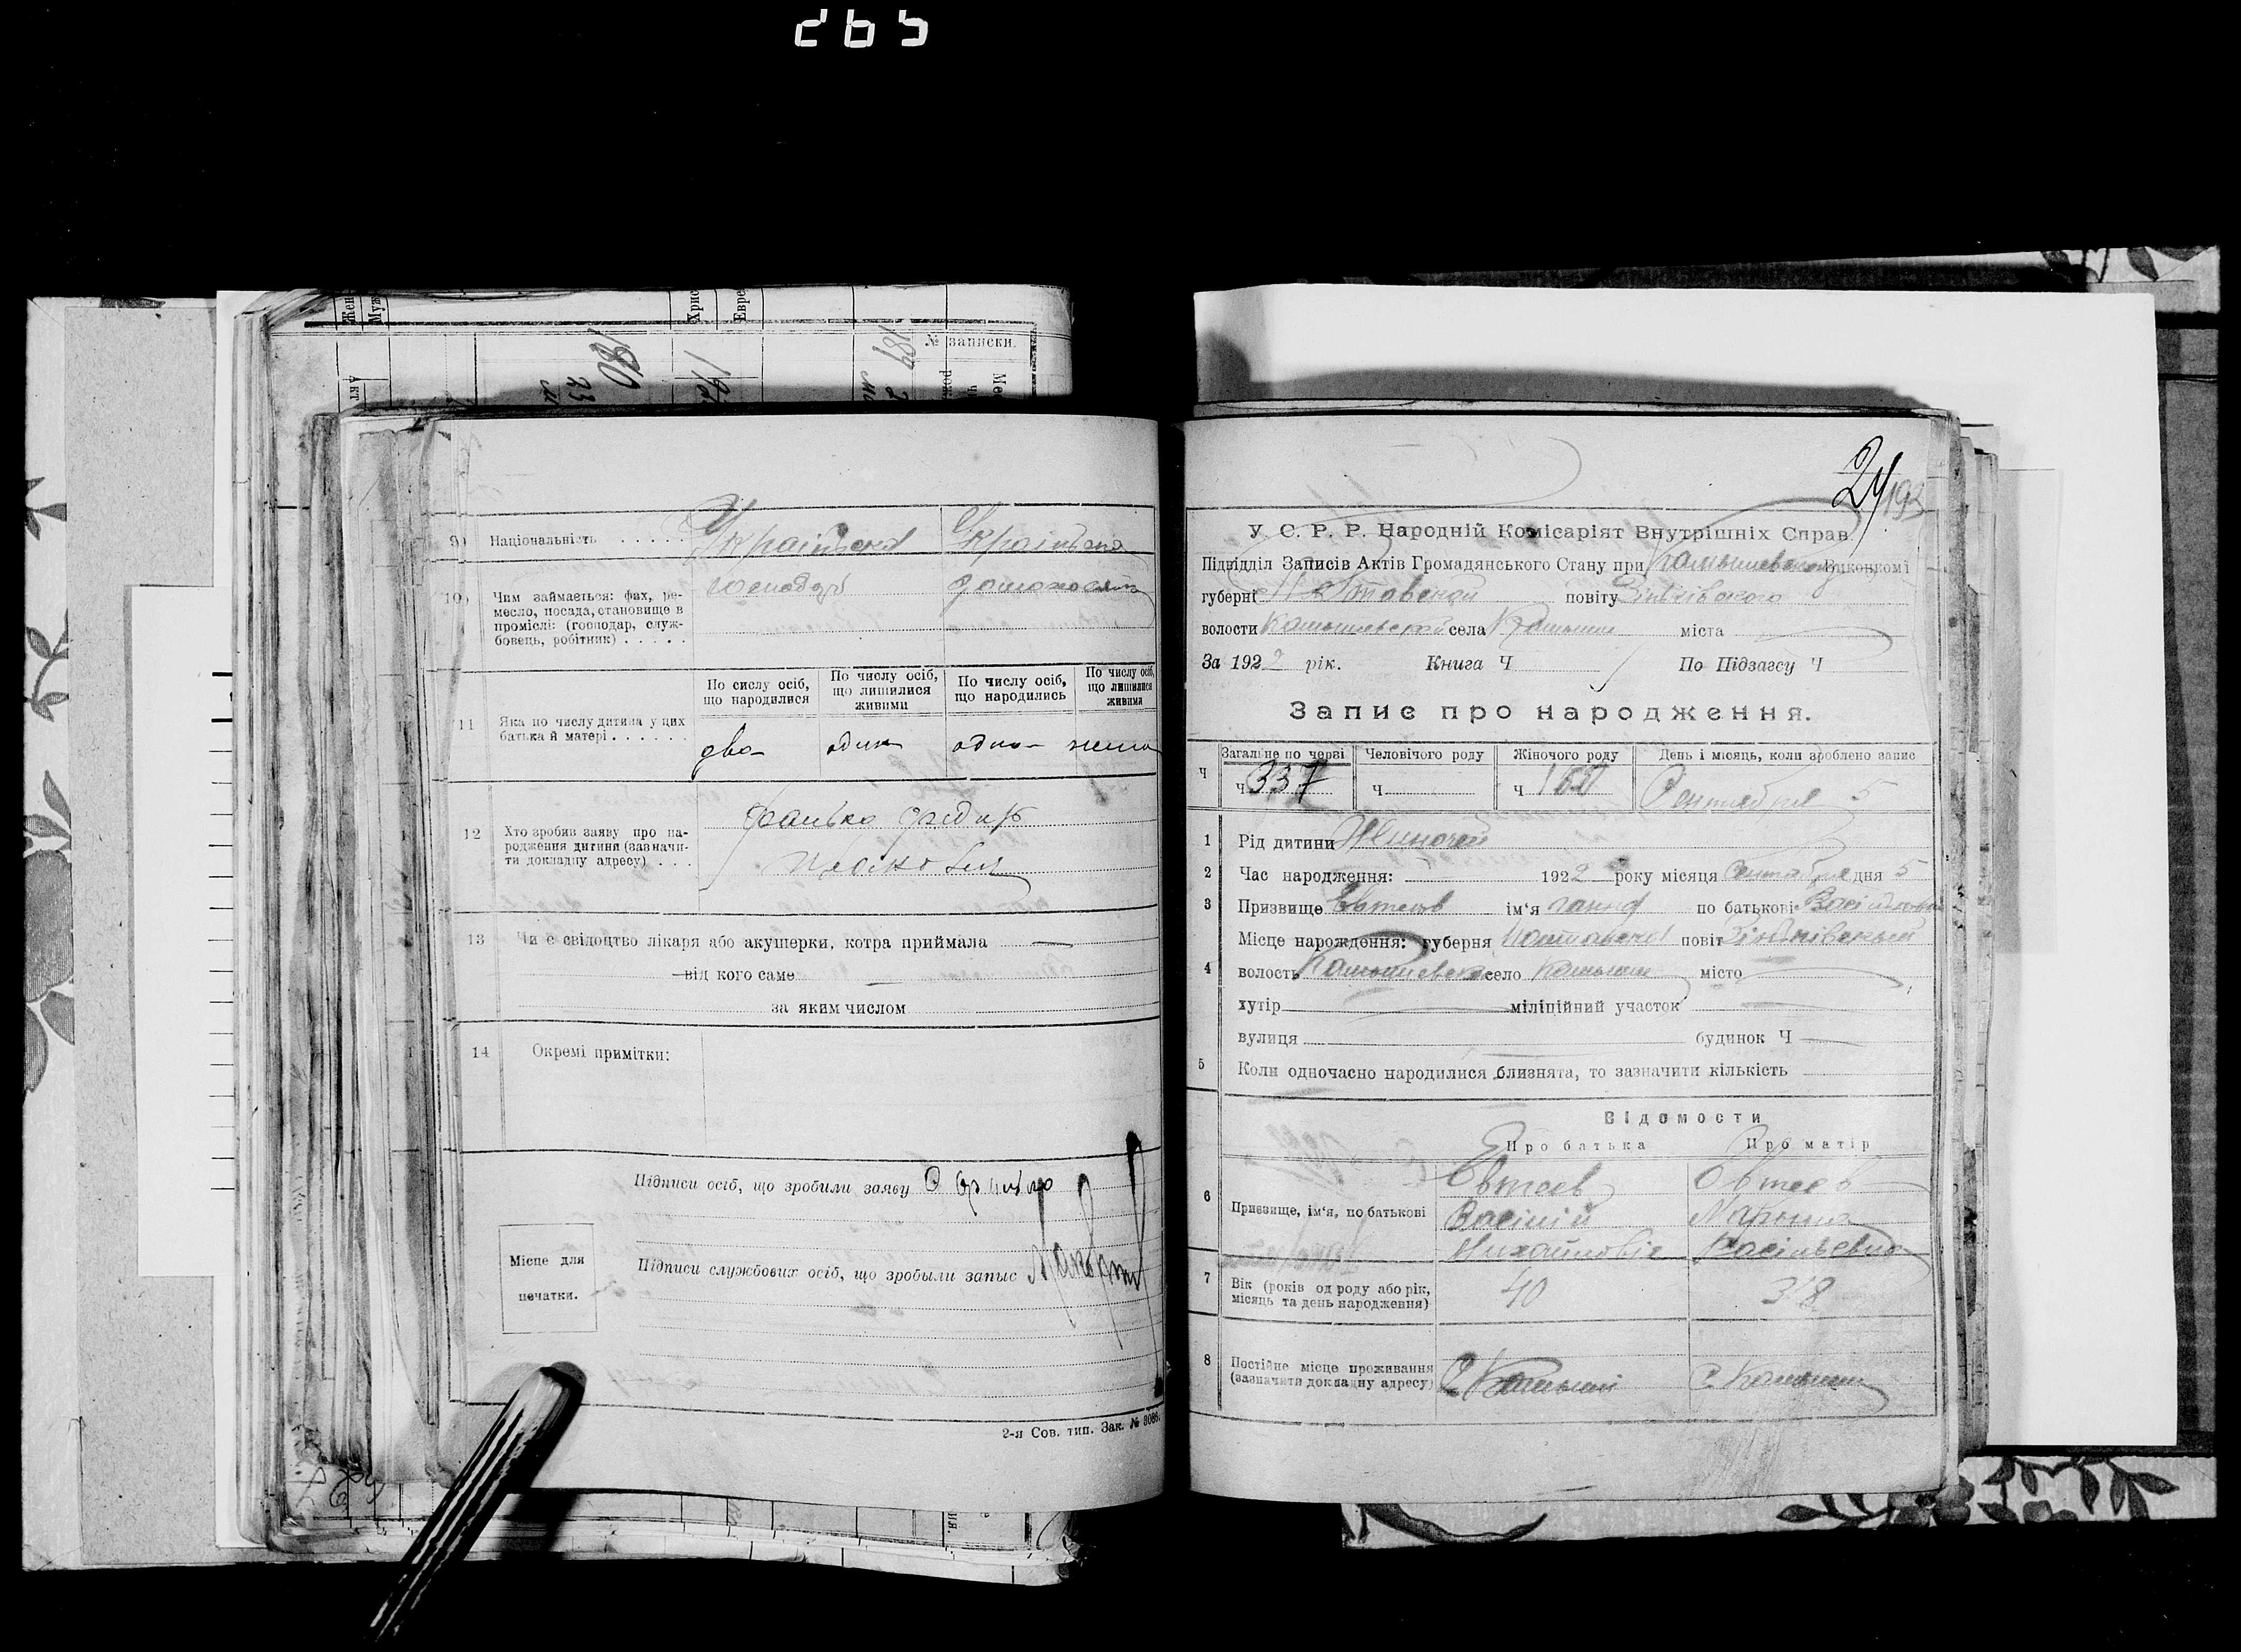 265
Жен
Муж
Хрис
Евре
№ записки.
180
187
23
9) Національність . . . . . Українська Українька
10) Чим займається: фах, ре-
месло, посада, становище в
промислі: (господар, служ-
бовець, робітник) . . . . .
господарь
11 Яка по числу дитина у цих
батька й матері . . . . . .
По сислу осіб,
що народилися
По числу осіб,
що лишилися
живими
По числу осіб,
що народились
По числу осіб,
що лишилися
живими
два один одна
12 Хто зробив заяву про на-
родження дитини (зазначи-
ти докладну адресу) . . .
13 Чи є свідоцтво лікаря або акушерки, котра приймала
від кого саме
за яким числом
14 Окремі примітки:
Підписи осіб, що зробили заяву
Місце для
печатки.
Підписи службових осіб, що зробыли запыс
2-я Сов. тип. Зак. №
24
193
У. С. Р. Р. Народній Комісаріят Внутрішніх Справ.
Підвідділ Записів Актів Громадянського Стану при Виконкомі
губерні Полтавской повіту Зіньківского
волости Камышевской села Камыши міста
За 1922 рік. Книга Ч По Підзагсу Ч
Запис про народження.
Загальне по черві Человічого роду Жіночого роду День і місяць, коли зроблено запис
Ч Ч 337 Ч Ч 160 Сентября 5
1 Рід дитини Жиночей
2 Час народження: 1922 року місяця Сентября дня 5
3 Призвище Евтеев ім'я Ганна по батькові
4 Місце нарождення: губерня Полтавска повіт Зіньківский
волость Камышевска село Камыши місто
хутір міліційний участок
вулиця будинок Ч
5 Коли одночасно народилися близнята, то зазначити кількість
Відомости
Про батька Про матір
6 Призвище, ім'я, по батькові
Евтеев Евтеев
Васілій Марина
Михайловіч Васільевна
7 Вік (років од роду або рік,
місяць та день народження)
40 38
8 Постійне місце проживання
(зазначити докладну адресу)
С. Камыши С. Камыши